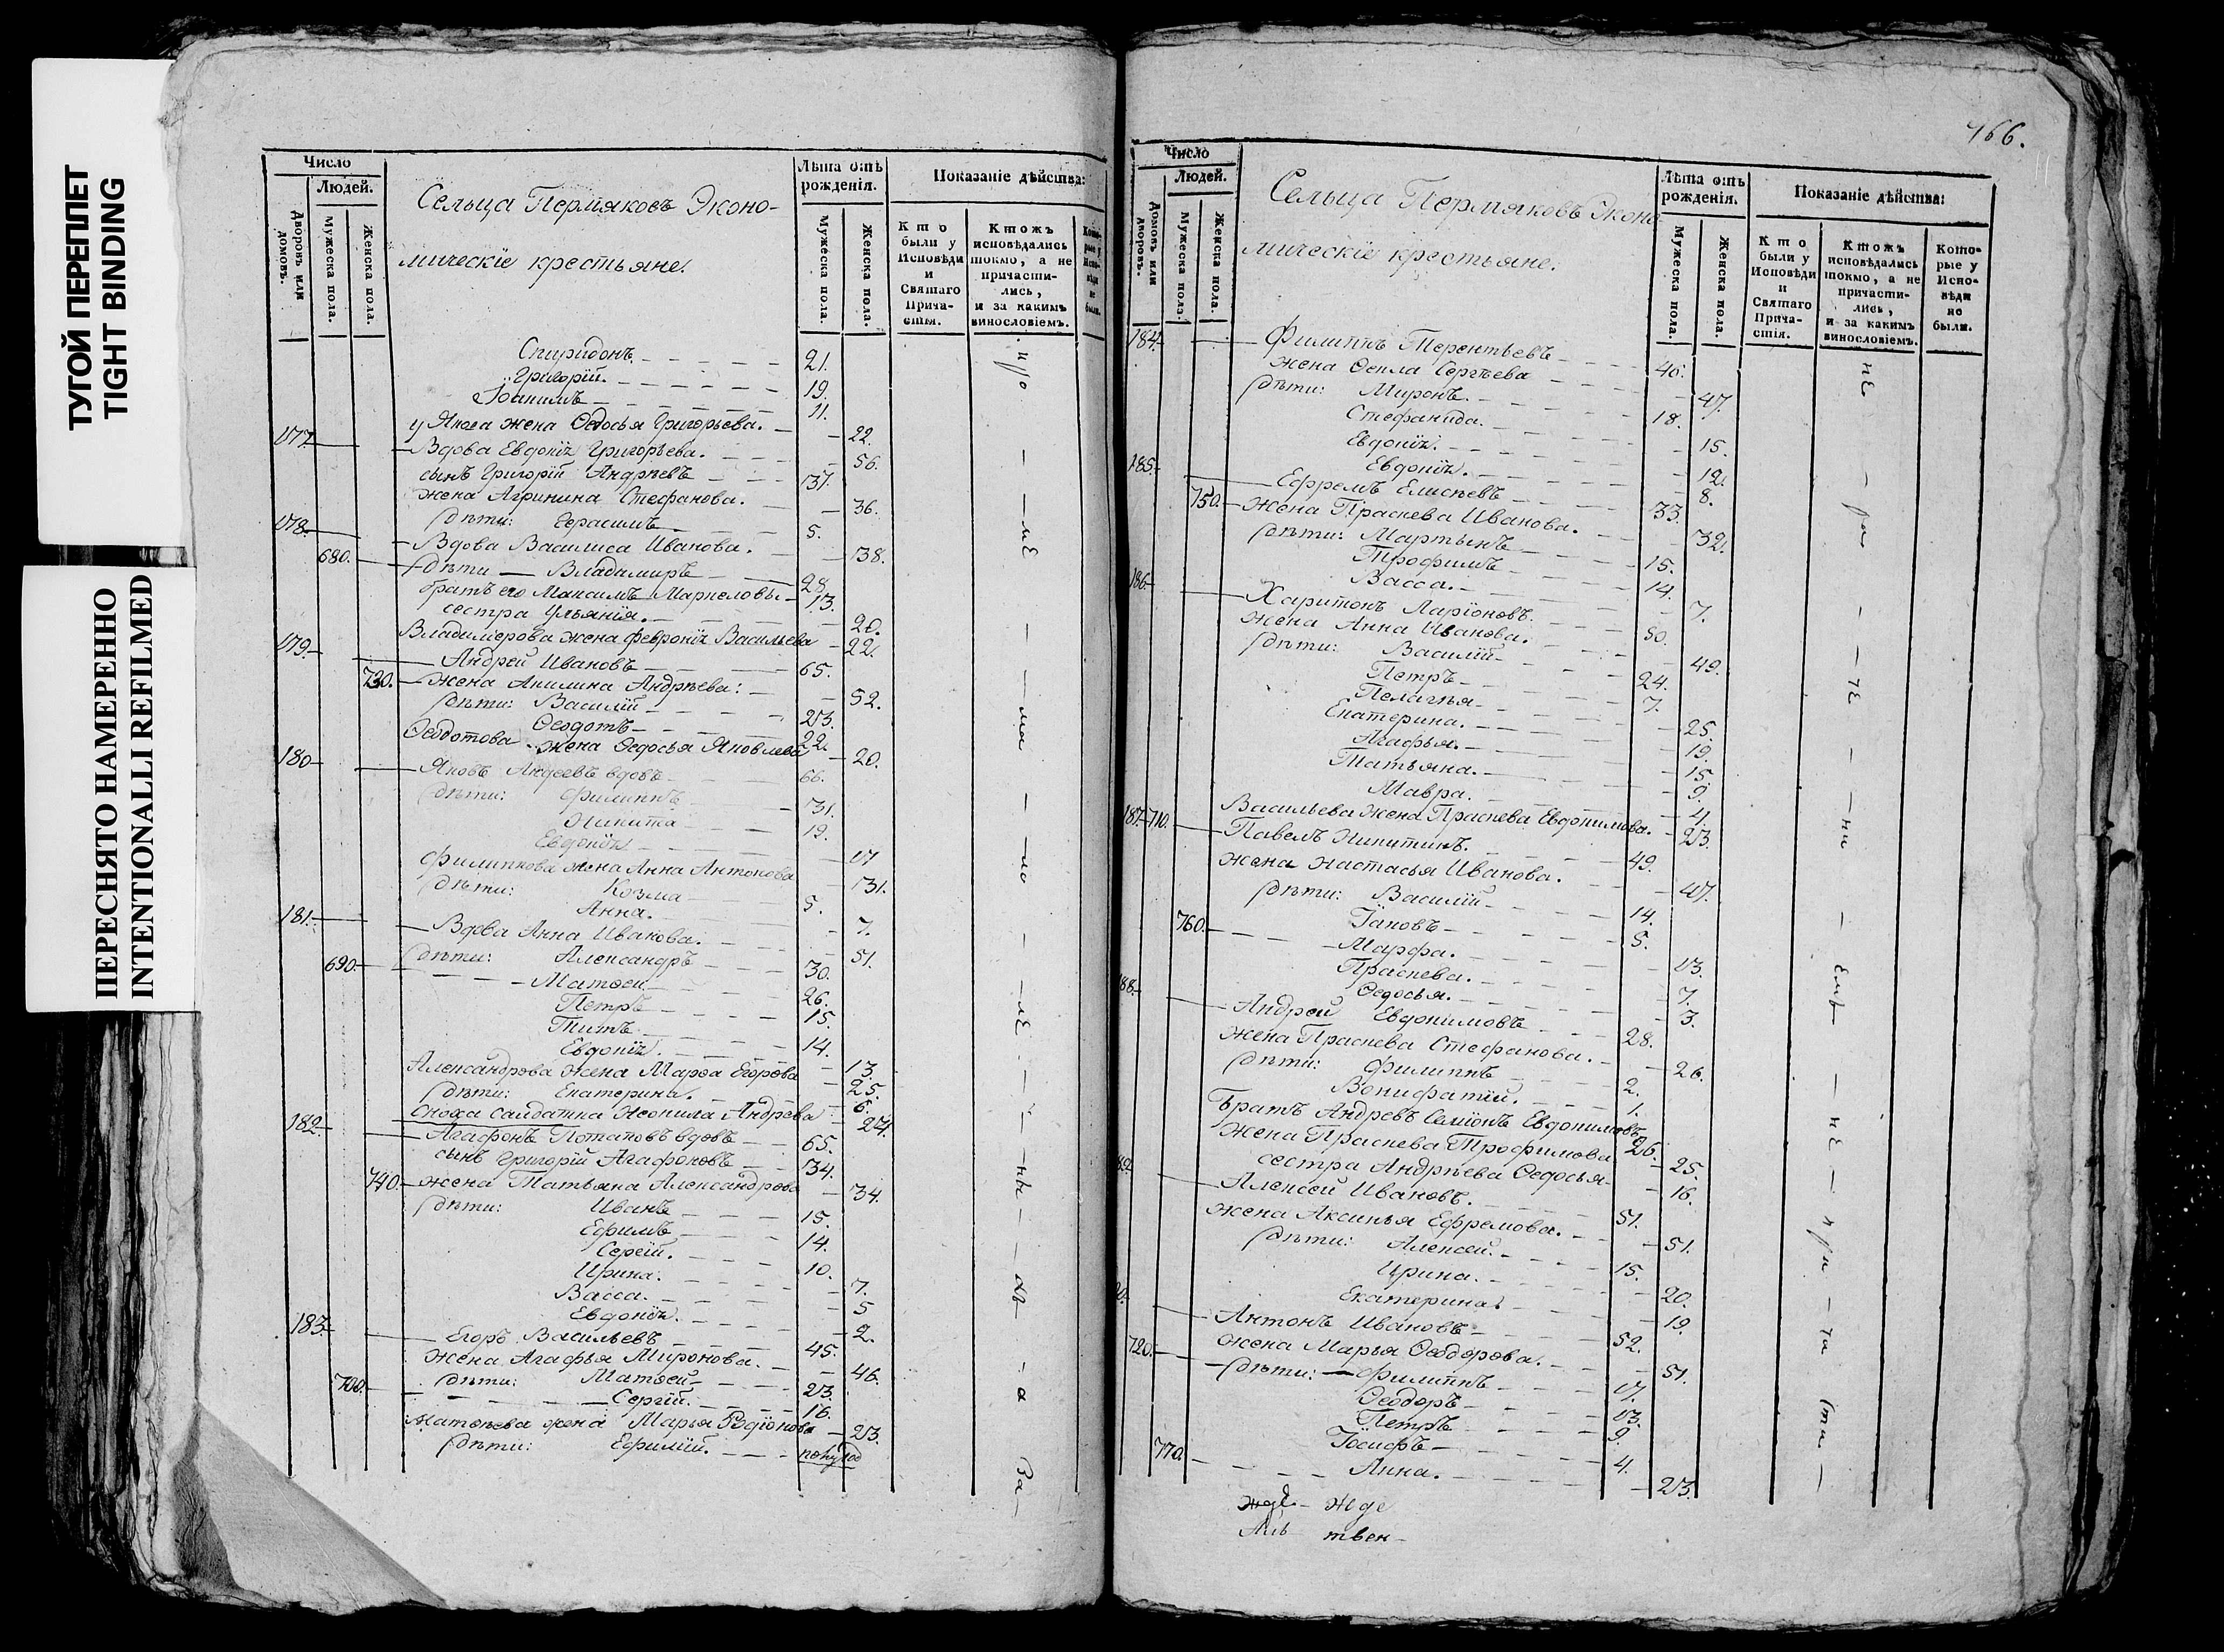 ТУГОЙ ПЕРЕПЛЕТ
TIGHT BINDING
ПЕРЕСНЯТО НАМЕРЕННО
INTENTIONALLI REFILMED
Число
Людей.
Дворовъ или домовъ.
Мужеска пола.
Женска пола.
Сельца Пермяковъ Эконо-
мическіе крестьяне.
Лѣта отъ рожденія.
Мужеска пола.
Женска пола.
Показаніе дѣйства:
Кто были у Исповѣди и Святаго Прича-стія.
Ктожъ исповѣдались токмо, а не причасти-лись, и за какимъ винословіемъ.
Кото-рые у Испо-вѣди не были.
Спиридонъ. 21.
Григорій. 19.
Іоакимъ 11.
у Якова жена Ѳедосья Григорьева. 22.
177. Вдова Евдокія Григорьева. 56.
сынъ Григорій Андреевъ 37.
жена Агрипина Стефанова. 36.
дѣти: Герасимъ 5.
178. Вдова Василиса Иванова. 38.
680. дѣти Владимиръ 28.
братъ его Максимъ Маркеловы 13.
сестра Ульянія. 20.
Владимерова жена Февронія Васильева 22.
179. Андрей Ивановъ 65.
730. жена Акилина Андреева: 52.
дѣти: Василій 23.
Ѳеодотъ 22.
Ѳеодотова жена Ѳедосья Яковлева 20.
180 Яковъ Андеевъ вдовъ 66.
дѣти: Филиппъ 31.
Никита 19.
Евдокія 17
Филиппова жена Анна Антонова 31.
дѣти: Козма 5.
Анна. 7.
181. Вдова Анна Иванова. 51.
690 дѣти: Александръ 30.
Матѳей 26.
Петръ 15.
Титъ 14.
Евдокія. 13.
Александрова жена Марѳа Егорова 25.
дѣти: Екатерина. 6.
сноха салдатка Неонила Андрева 27.
182. Агафонъ Потаповъ вдовъ 65.
сынъ Григорій Агафоновъ 34.
740. жена Татьяна Александрова 34.
дѣти: Иванъ 15.
Ефимъ 14.
Сергій. 10.
Ирина. 7.
Васса. 5
Евдокія. 2.
183. Егоръ Васильевъ 45.
жена Агафья Миронова. 46.
дѣти: Матѳей 23.
700. Сергій. 16.
Матѳеева жена Марья Родіонова 23.
дѣти: Ефимій. полугод
166.
Число
Людей.
Домовъ или дворовъ.
Мужеска пола.
Женска пола.
Сельца Пермяковъ Эконо
мическіе крестьяне.
Лѣта отъ рожденія.
Мужеска пола.
Женска пола.
Показаніе дѣйства:
Кто были у Исповѣди и Святаго Прича-стія.
Ктожъ исповѣдались токмо, а не причасти-лись, и за какимъ винословіемъ.
Кото-рые у Испо-вѣди не были.
184. Филиппъ Терентьевъ 46.
жена Ѳекла Сергѣева 47.
дѣти: Миронъ. 18.
Стефанида. 15.
Евдокія. 12.
Евдокія. 8.
185. Ефремъ Елисѣевъ 33.
750. жена Праскева Иванова. 32.
дѣти: Мартынъ 15.
Трофимъ 14.
Васса. 7.
186 Харитонъ Ларіоновъ. 50.
жена Анна Иванова. 49.
дѣти: Василій 24.
Петръ 7.
Пелагѣя 25.
Екатерина. 19.
Агафья. 15.
Татьяна. 9.
Мавра. 4.
Васильева жена Праскева Евдокимова. 23.
187 710. Павелъ Никитинъ. 49.
жена Настасья Иванова. 47.
дѣти: Василій 14.
760. Іаковъ 5.
Марфа. 13.
Праскева. 7.
Ѳедосья. 3.
88. Андрей Евдокимовъ 28.
жена Праскева Стефанова. 26.
дѣти: Филиппъ 2.
Вонифатій. 1.
Братъ Андревъ Семіонъ Евдокимовъ 26.
жена Праскева Трофимова 25.
сестра Андрѣева Ѳедосья 16.
89 Алексей Ивановъ. 51.
жена Аксинья Ефремова. 51.
дѣти: Алексей. 15.
Ирина. 20.
Екатерина 19.
90. Антонъ Ивановъ 52.
720. жена Марья Ѳеодорова. 51.
дѣти: Филиппъ 17.
Ѳеодоръ 13.
Петръ 9.
Іосифъ 4.
770. Анна. 23.
жде
твен